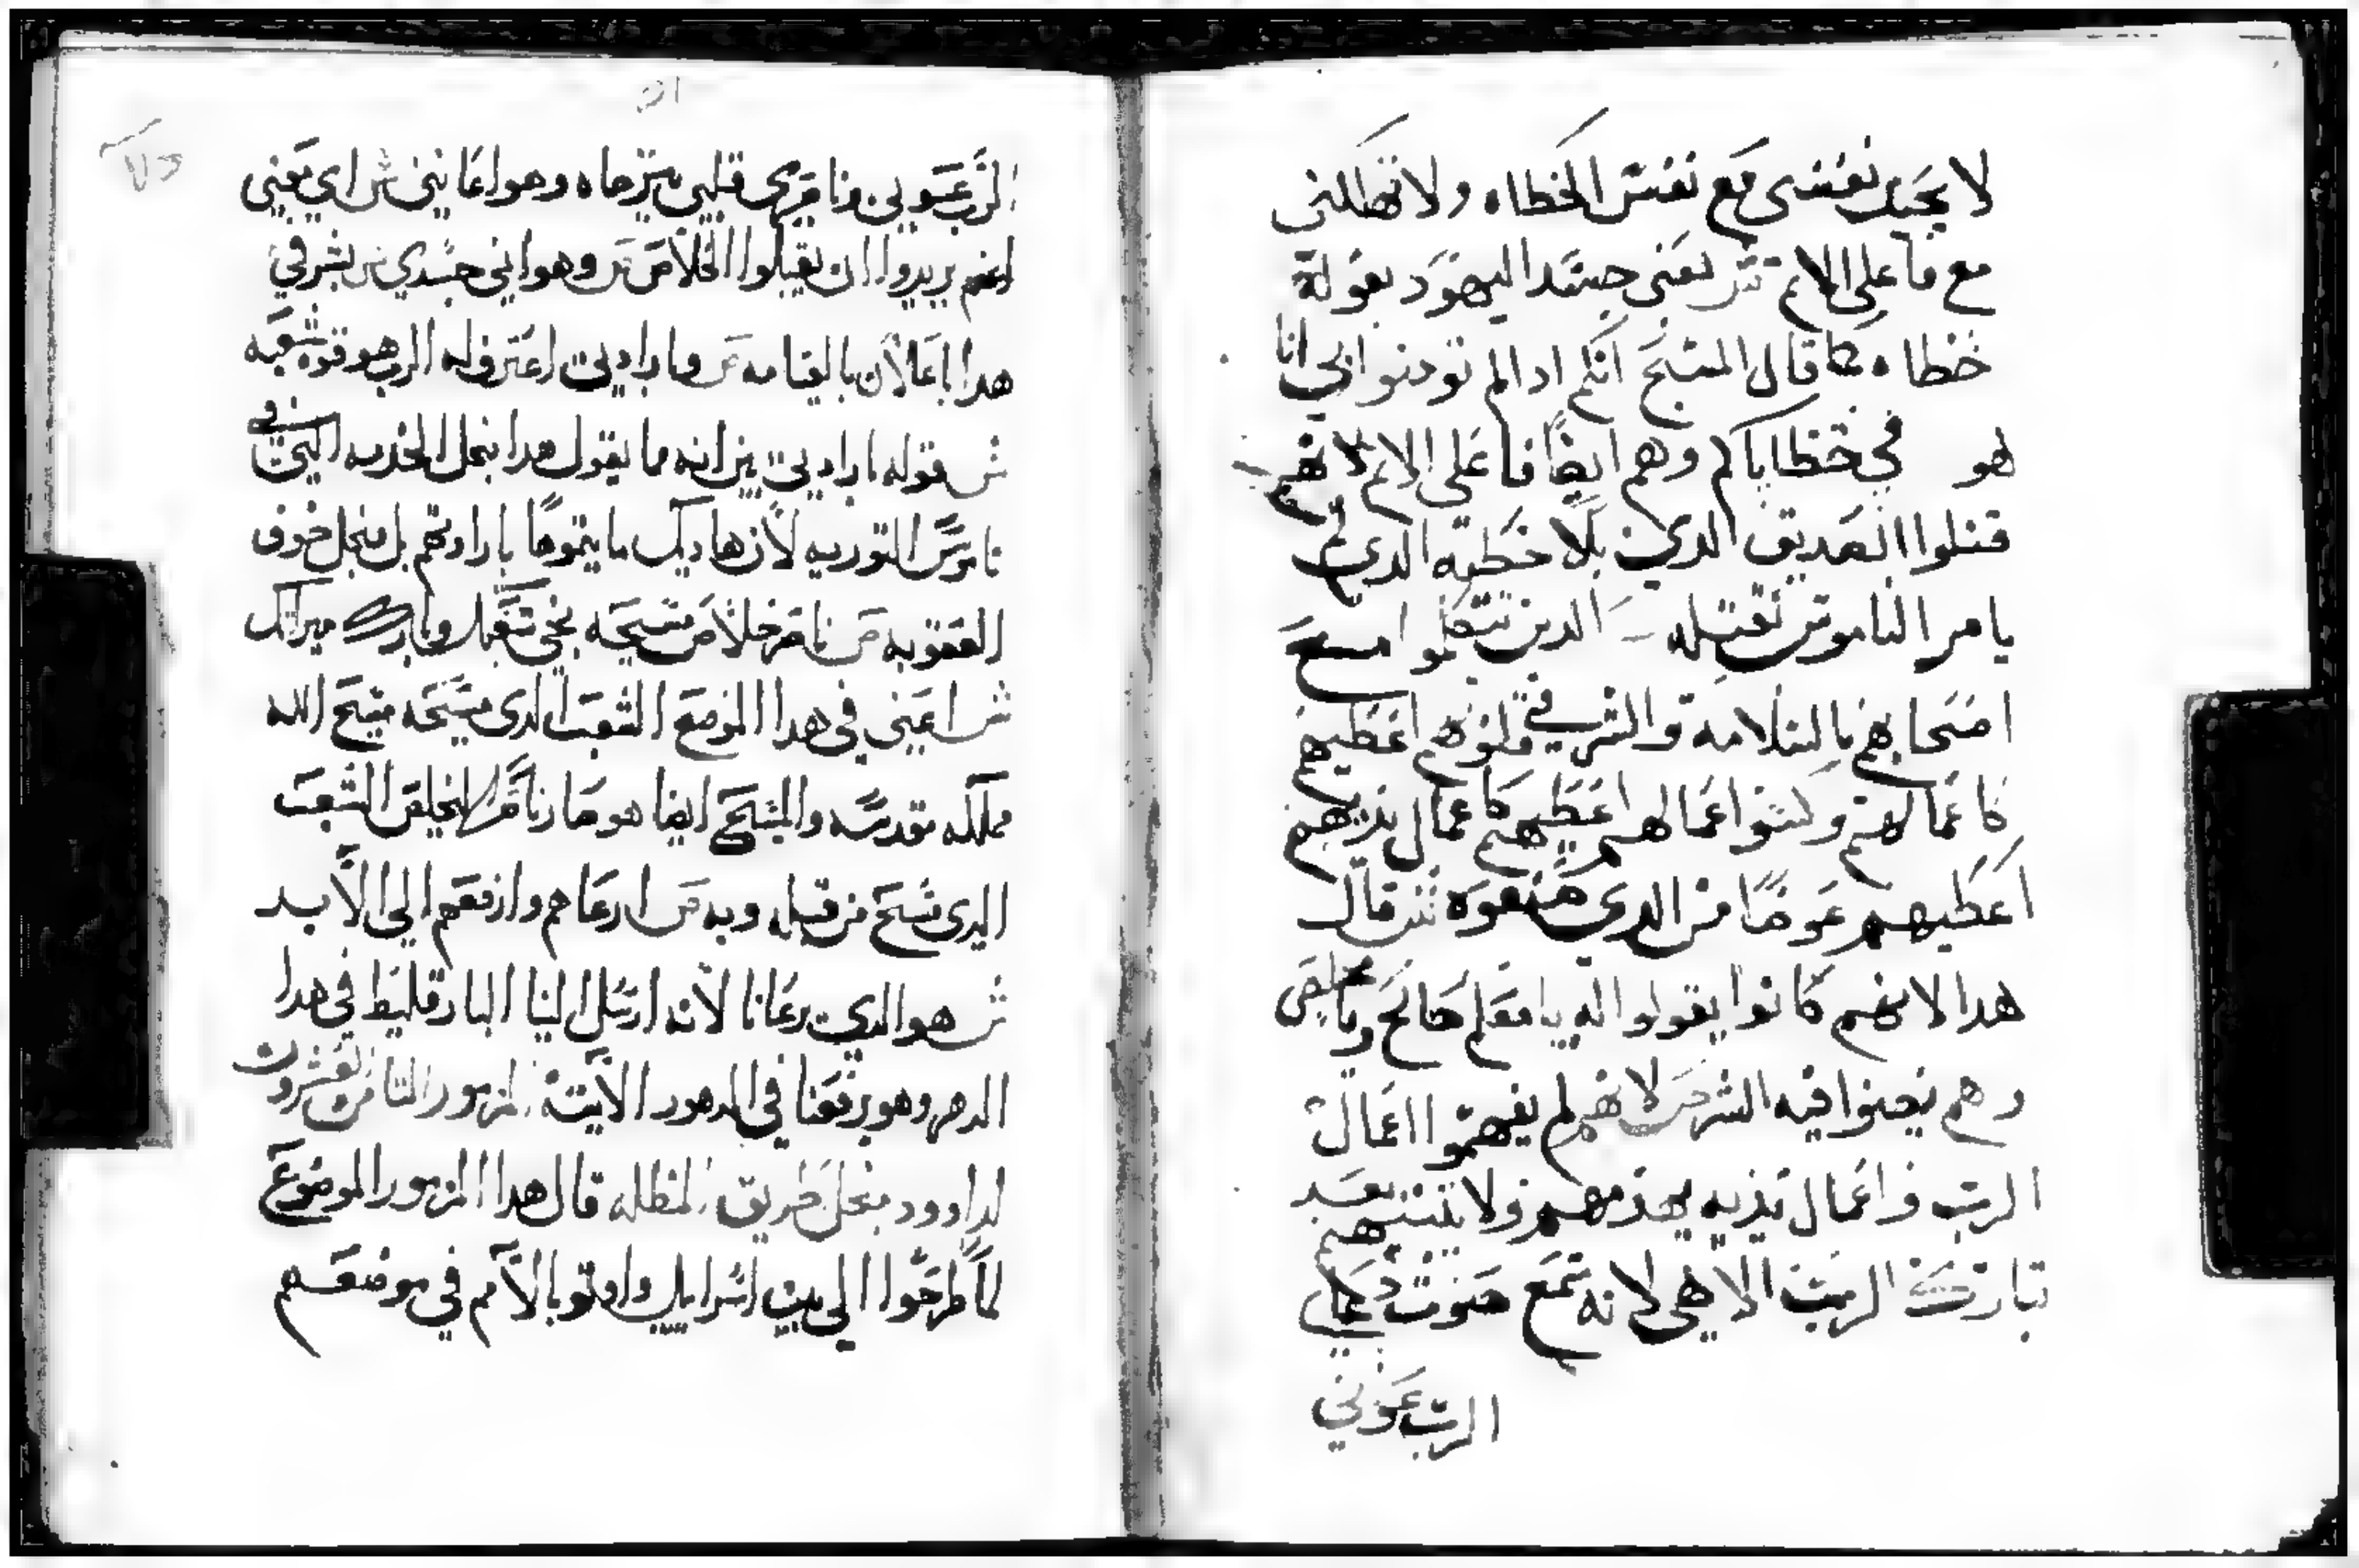 لا تجدب نفسى مع نفس الخطاه ولا تهلكنى
مع فاعلى الاتم تش يعنى جسد اليهود بقوله
خطاه كما قال المسيح انكم ادا لم تومنوا اني انا
هو في خطاياكم وهم ايضا فاعلى الاتم لانهم
قتلوا الصديق الدي بلا خطيه الدي لم
يامر الناموس بقتله الدين تتكلموا مع
اصحابهم بالسلامه والشر في قلوبهم اعطيهم
كاعمالهم وكسوا اعمالهم اعطيهم كاعمال يديهم
اعطيهم عوضا من الدي صنعوه تش قال
هدا لانهم كانوا يقولوا له يا معلم صالح
وهم يصنوا فيه الشر ص لانهم لم يفهموا اعمال
الرب واعمال يديه يهدمهم ولا يبنيهم بعد
تبارك الرب الاهي لانه سمع صوت دعاي
الرب عوني
الرب عوني وناصري قلبي يترجاه وهو اعانني ش اي يعني
انهم يريدوا ان يقبلوا الخلاص ص وهواني جسدي ش بشر في
هدا باعلان بالقيامه ص وبارادتي اعترف له الرب هو قوه شعبه
ش قوله بارادتي بين انه ما يقول هدا بنجل الخدمه التي في
ناموس التوريه لان هاديك ما يتموها بارادتهم بل منجل خوف
العقوبه ص ناصر خلاص مسيحه نجي شعبك وبارك ميراتك
ش اعني في هدا الموضع الشعب الدى مسيحه مسيح الله
مملكه مقدسه والمسيح ايضا هو صار ناصرا لنخلص الشعب
الدى مسح من قبله وبه ص ارعاهم وارفعهم الى الابد
ش هو الدي يرعانا لانه ارسل الينا البارقليط في هدا
الدهر وهو يرفعنا في الدهور الاتيه المزمور التامن وعشرون
لداوود منجل طريق المظله قال هدا المزمور الموضوع
لما طرحوا الى بني اسرايل واوتو بالامم في موضعهم